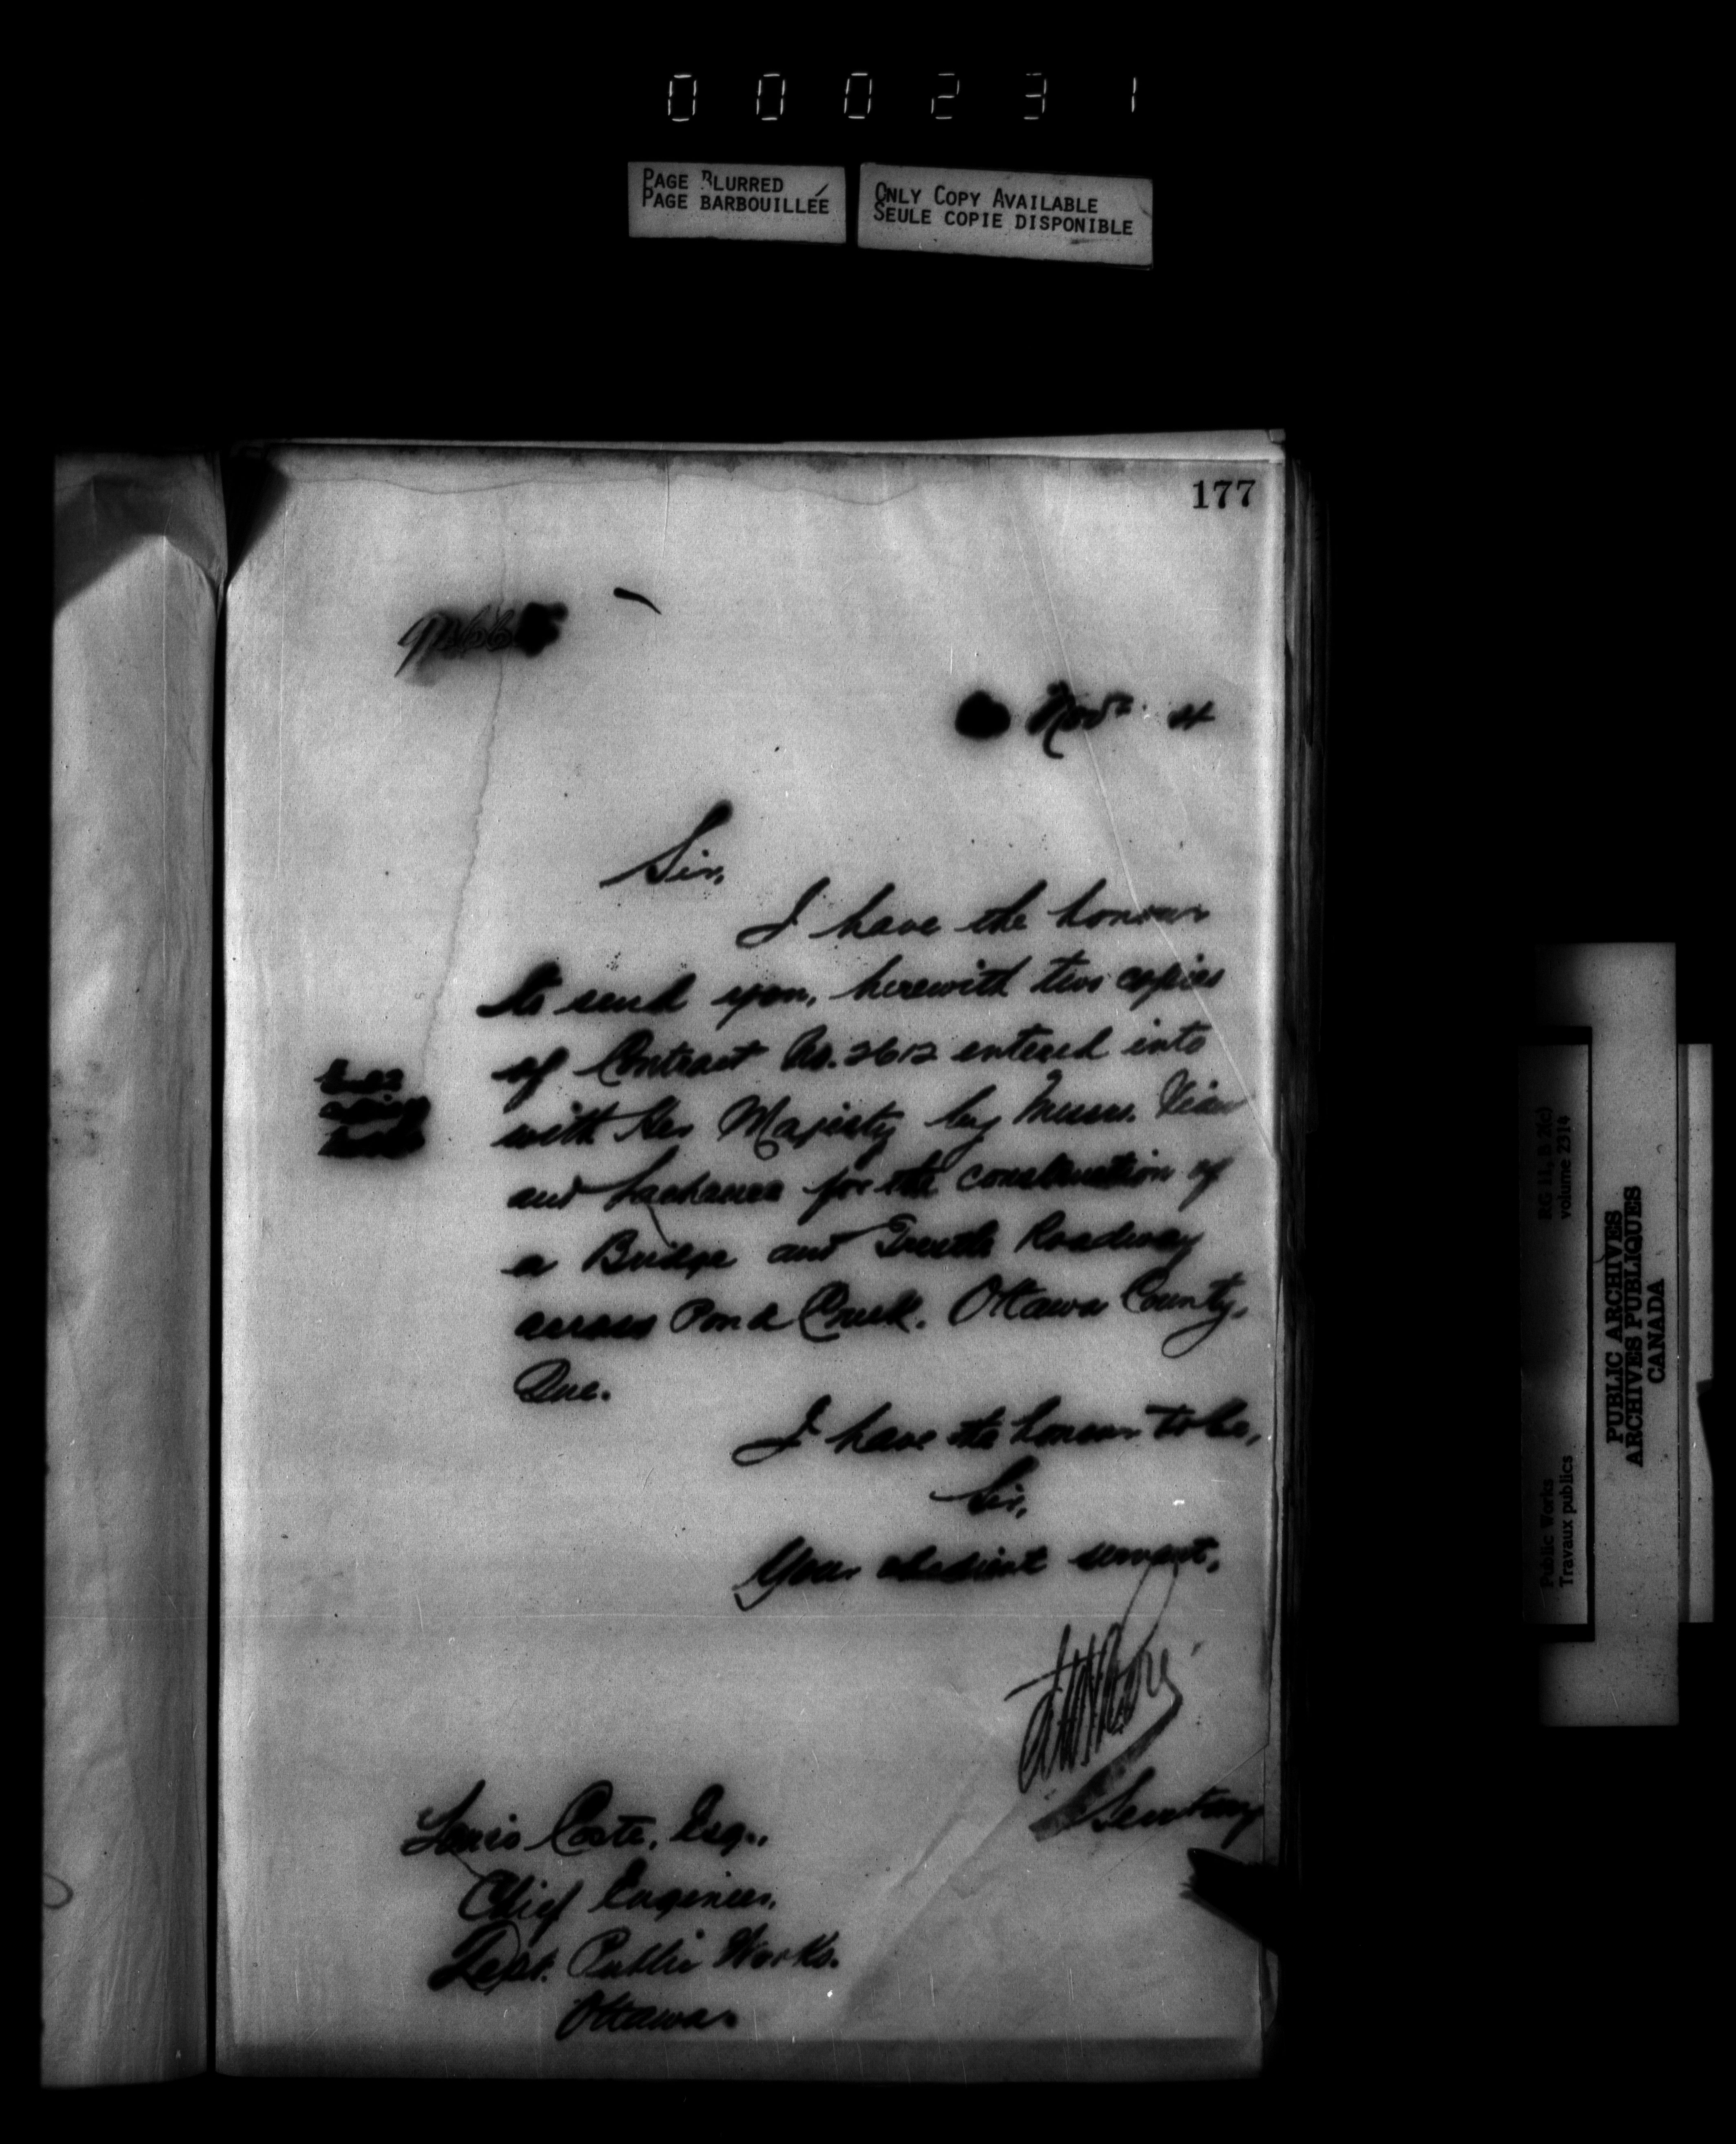 000231
PAGE BLURRED
PAGE BARBOUILLÉE
ONLY COPY AVAILABLE
SEULE COPIE DISPONIBLE
177
Novr. 4
Sir,
I have the honour
to send you, herewith two copies
of Contract No. 2612 entered into
with Her Majesty by Messrs.
and for the construction of
a Bridge and Trestle Roadway
across Pond Creek. Ottawa County,
Que.
I have the honour to be,
Sir,
Your obedient servant,
Secretary
Louis Coste, Esq.,
Chief Engineer,
Dept. Public Works.
Ottawa
RG 11, B 2(c)
volume 2314
Public Works
Travaux publics
PUBLIC ARCHIVES
ARCHIVES PUBLIQUES
CANADA